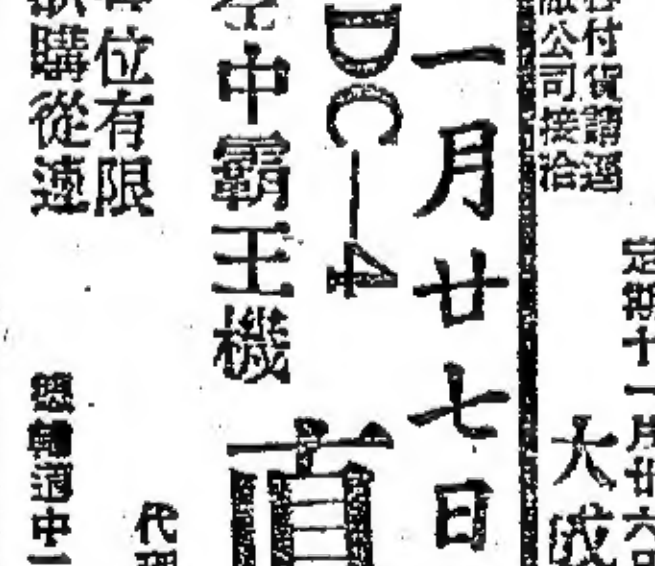 付貨請逕
公司接洽
定期十一月廿六日
大成
一月廿七日
DC—4
空中霸王機
直
位有限
購從速
代理
德輔道中